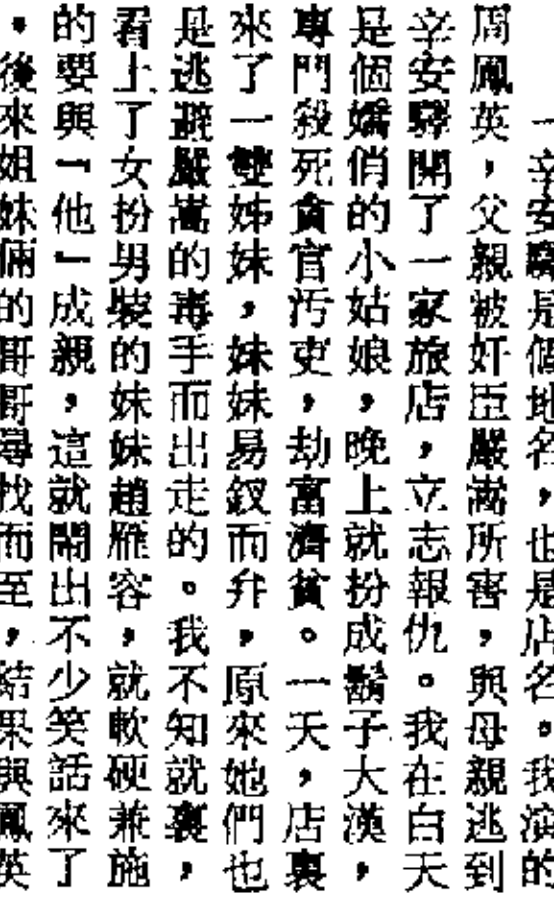 一辛安驛是個地名，也是店名。我演的
周鳳英，父親被奸臣嚴嵩所害，與母親逃到
辛安驛開了一家旅店，立志報仇。我在白天
是個嬌俏的小姑娘，晚上就扮成鬍子大漢，
專門殺死貪官污吏，劫富濟貧。一天，店裏
來了一雙姊妹，妹妹易釵而弁，原來她們也
是逃避嚴嵩的毒手而出走的。我不知就裏，
看上了女扮男裝的妹妹趙雁容，就軟硬兼施
的要與「他」成親，這就鬧出不少笑話來了
。後來姐妹倆的哥哥尋找而至，結果與鳳英